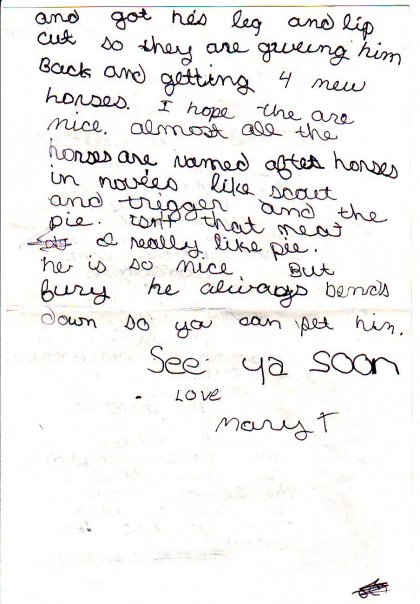 and got hés leg and lip
cut so they are giveing him
Back and getting 4 new
horses. I hope the are
nice. almost all the
horses are named after horses
in novées like scout
and trigger and the
pie. isn't that neat
I really like pie.
he is so nice But
fury he always bends
down so ya can pet him.
See ya soon
LOVE
Mary T